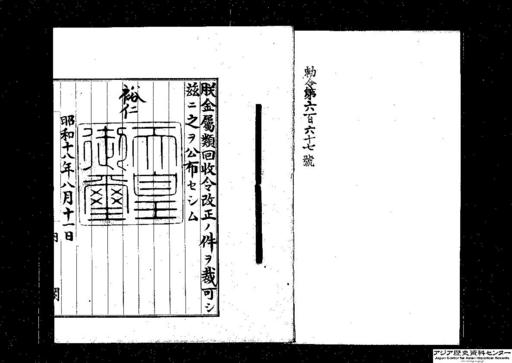 勅令第六百六十七號
朕金屬類回收令改正ノ件ヲ裁可シ
玆ニ之ヲ公布セシム
裕仁
天皇
御璽
昭和十八年八月十一日
内
閣
アジア歴史資料センター
Japan Center for Asian Historical Records